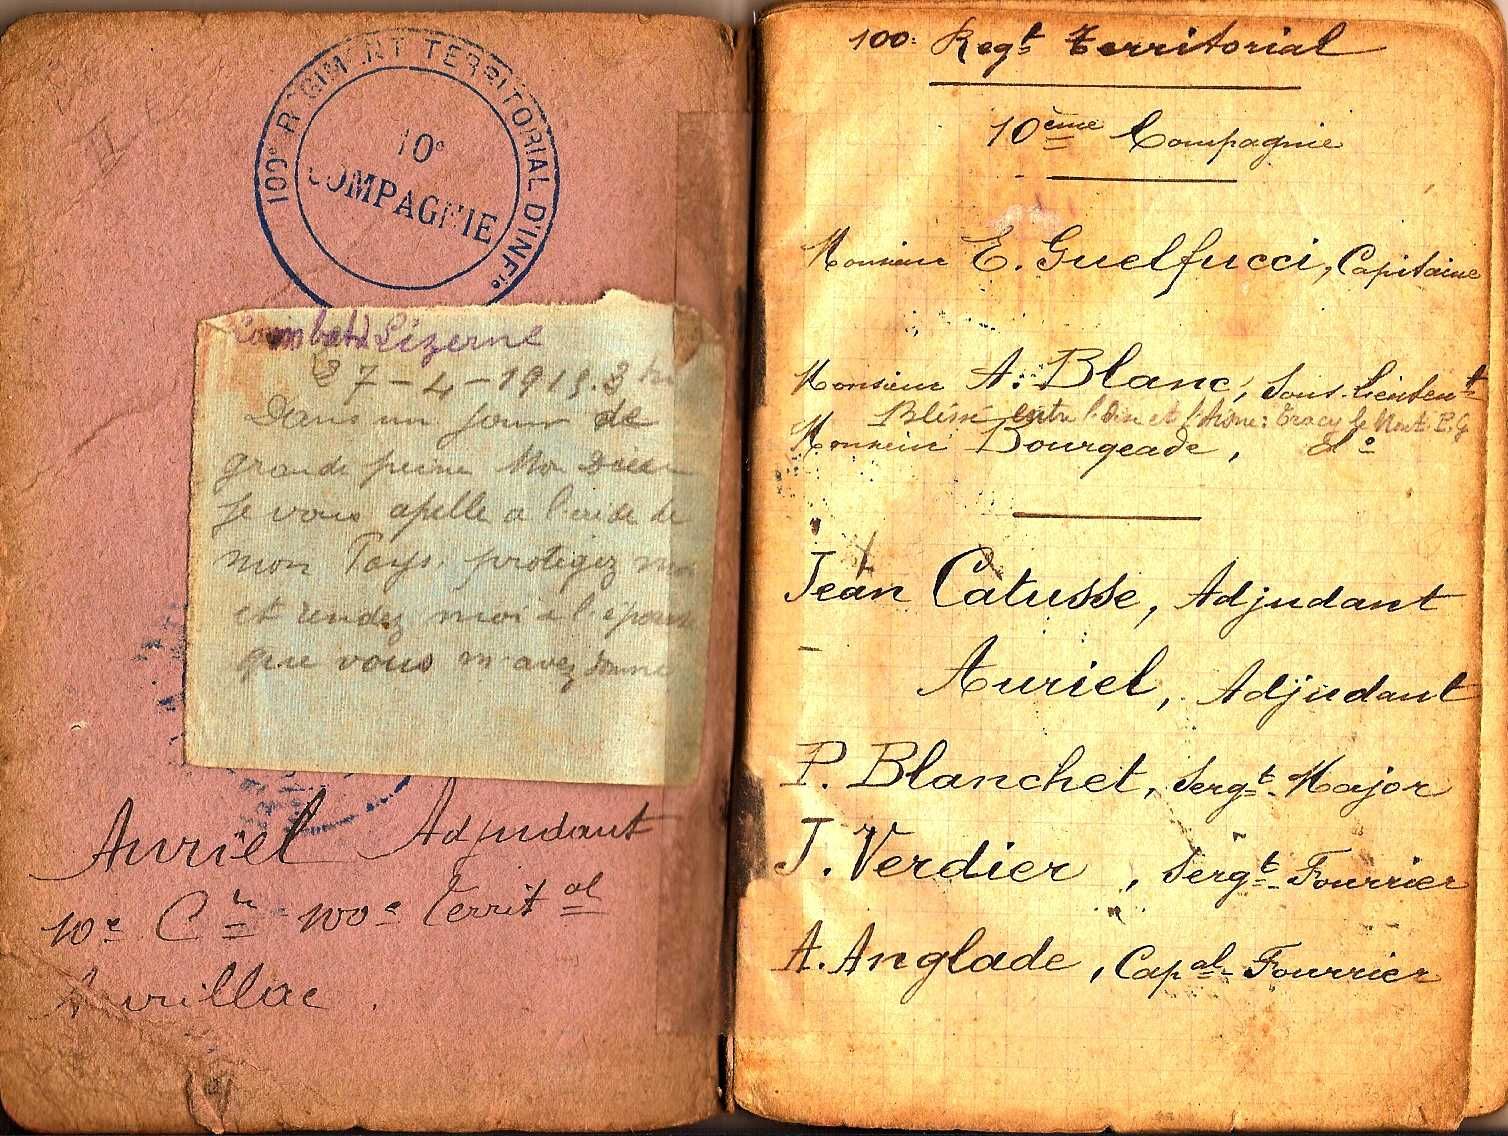 100e REGIMENT TERRITORIAL D'INFie
10e
COMPAGNIE
Combats Lizerne
27-4-1915. 3 hr
Dans un jour de
grande peine Mon Dieu
je vous apelle a l'aide de
mon Pays. protegez moi
et rendez moi a l'epouse
que vous m'avez donné
Auriel Adjudant
10e Cie 100e Territal
Aurillac.
100e Regt Territorial
10ème Compagnie
Monsieur E. Guelfucci, Capitaine
Monsieur A. Blanc, Sous-Lieutent
Blessé entre l'Oise et l'Aisne: Tracy le Mont P.G
Monsieur Bourgeade, do
Jean Catusse, Adjudant
Auriel, Adjudant
P. Blanchet, Sergt-Major
J. Verdier, Sergt-Fourrier
A. Anglade, Capal-Fourrier